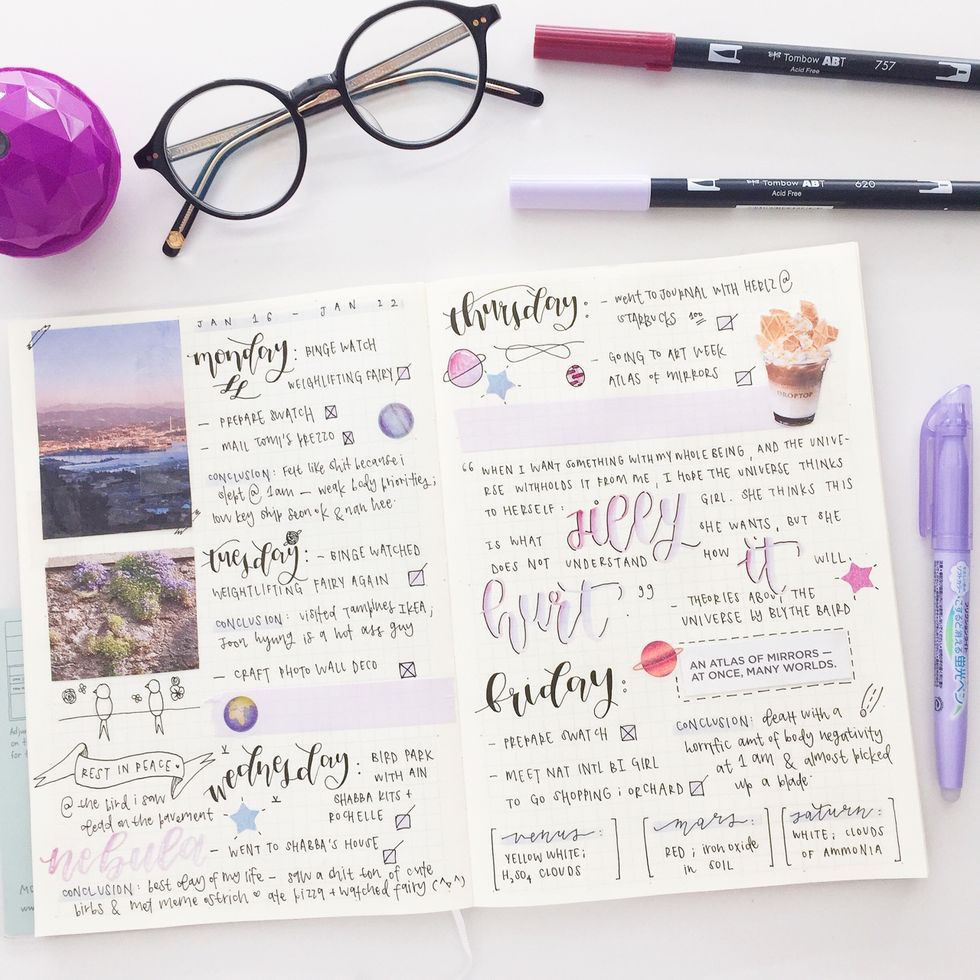 Tombow ABT 757
Acid Free
Tombow ABT 620
Acid Free
JAN 16 - JAN 22
monday: BINGE WATCH
WEIGHLIFTING FAIRY
- PREPARE SWATCH
- MAIL TOMI'S PREZZO
CONCLUSION: felt like shit because i
slept @ 1am - weak body priorities;
low key ship seon ok & nah hee
tuesday: - BINGE WATCHED
WEIGHTLIFTING FAIRY AGAIN
CONCLUSION: visited Tampines IKEA;
joon hyung is a hot ass guy
- CRAFT PHOTO WALL DECO
REST IN PEACE
@ the bird i saw
dead on the pavement
wednesday: BIRD PARK
WITH AIN
SHABBA KITS +
ROCHELLE
- WENT TO SHABBA'S HOUSE
nebula
CONCLUSION: best day of my life - saw a shit ton of cute
birbs & met meme ostrich ♥ ate pizza + watched fairy (^v^)
thursday: - went TO JOURNAL WITH HERLZ @
STARBUCKS 100
- GOING TO ART WEEK
ATLAS OF MIRRORS
DROPTOP
"WHEN I WANT SOMETHING WITH MY WHOLE BEING, AND THE UNIVE-
RSE WITHHOLDS IT FROM ME, I HOPE THE UNIVERSE THINKS
TO HERSELF: silly GIRL. SHE THINKS THIS
IS WHAT SHE WANTS, BUT SHE
DOES NOT UNDERSTAND HOW it WILL
hurt."
- THEORIES ABOUT THE
UNIVERSE BY BLYTHE BAIRD
AN ATLAS OF MIRRORS —
AT ONCE, MANY WORLDS.
friday:
- PREPARE SWATCH
- MEET NAT INTL BI GIRL
TO GO SHOPPING; ORCHARD
CONCLUSION: dealt with a
horrific amt of body negativity
at 1 am & almost picked
up a blade
venus:
YELLOW WHITE;
H2SO4 CLOUDS
mars:
RED; iron oxide
in SOIL
saturn:
WHITE; CLOUDS
OF AMMONIA